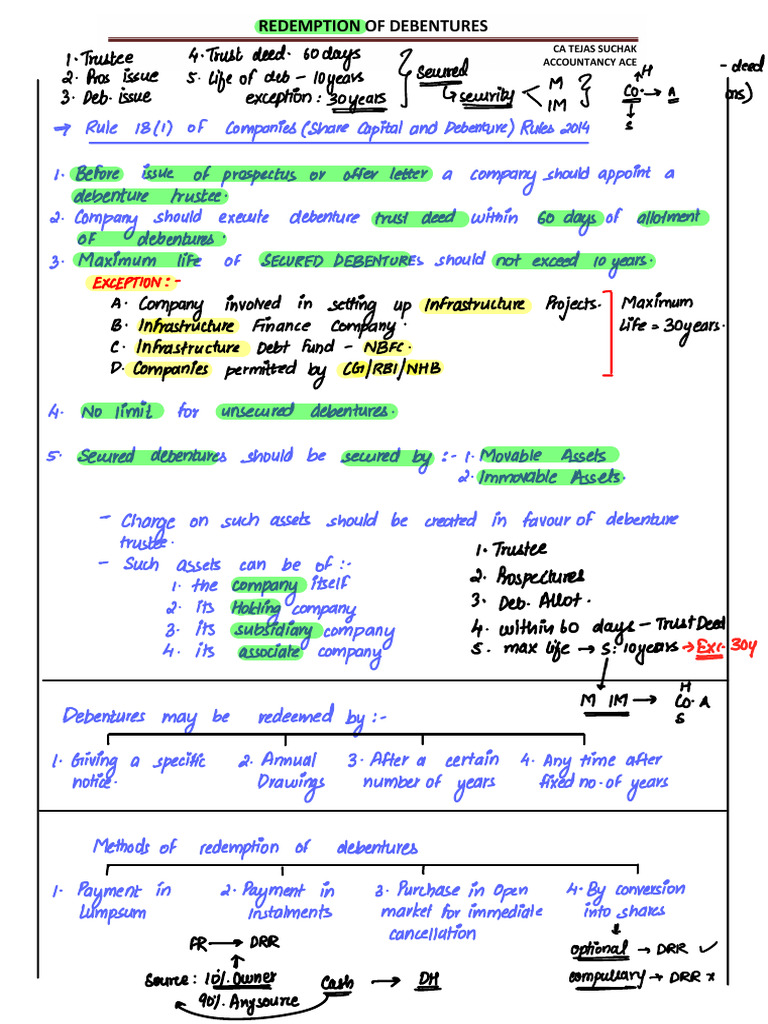 REDEMPTION OF DEBENTURES
CA TEJAS SUCHAK
ACCOUNTANCY ACE
1. Trustee
2. Pros issue
3. Deb. issue
4. Trust deed. 60 days
5. Life of deb - 10 years
exception : 30 years
secured
↳ security < M
IM
H
Co. → A
S
- deed
ns)
→ Rule 18(1) of Companies (Share Capital and Debenture) Rules 2014
1. Before issue of prospectus or offer letter a company should appoint a
debenture trustee.
2. Company should execute debenture trust deed within 60 days of allotment
of debentures.
3. Maximum life of SECURED DEBENTUREs should not exceed 10 years.
EXCEPTION :-
A. Company involved in setting up Infrastructure Projects.
B. Infrastructure Finance Company.
C. Infrastructure Debt fund - NBFC.
D. Companies permitted by CG/RBI/NHB
Maximum
Life = 30 years.
4. No limit for unsecured debentures.
5. Secured debentures should be secured by :- 1. Movable Assets
2. Immovable Assets.
- Charge on such assets should be created in favour of debenture
trustee.
- Such assets can be of :-
1. the company itself
2. its Holding company
3. its subsidiary company
4. its associate company
1. Trustee
2. Prospectures
3. Deb. Allot.
4. within 60 days - Trust Deed
5. max life → S: 10 years → Exc. 30y
M IM → Co. A
H
S
Debentures may be redeemed by :-
1. Giving a specific
notice.
2. Annual
Drawings
3. After a certain
number of years
4. Any time after
fixed no. of years
Methods of redemption of debentures
1. Payment in
Lumpsum
2. Payment in
instalments
3. Purchase in Open
market for immediale
cancellation
4. By conversion
into shares
optional → DRR ✓
compulsary → DRR x
PR → DRR
Source : 10% Owner
90% Any source
Cash → DH